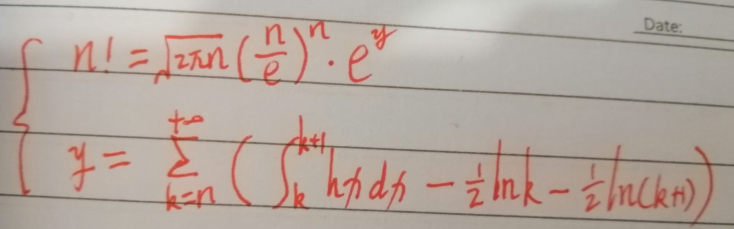 Date:
n! = √(2πn) (n/e)^n · e^y
y = ∑_{k=n}^{+∞} ( ∫_k^{k+1} ln x dx − ½ ln k − ½ ln(k+1) )